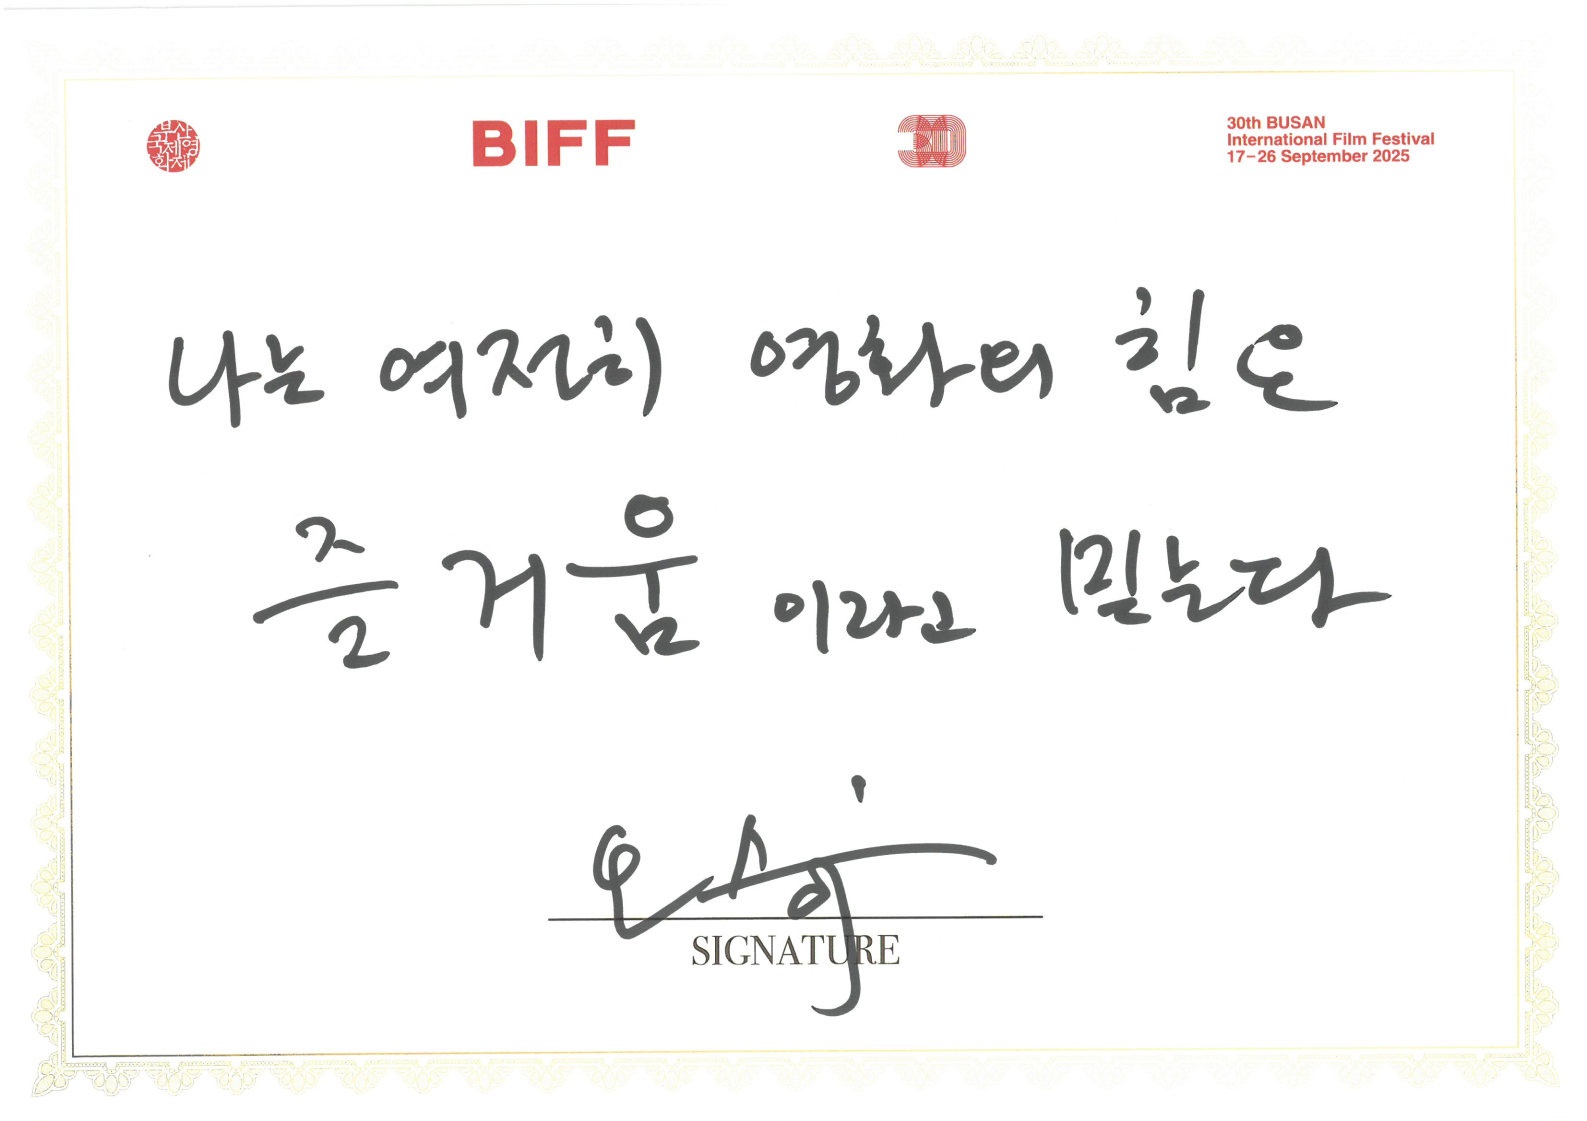 부산국제영화제
BIFF
30
30th BUSAN
International Film Festival
17–26 September 2025
나는 여전히 영화의 힘은
즐거움이라고 믿는다
SIGNATURE